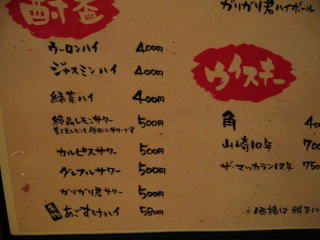 酎盃
ウーロンハイ 400円
ジャスミンハイ 400円
緑茶ハイ 400円
絶品レモンサワー 500円
カルピスサワー 500円
グレフルサワー 500円
ガリガリ君サワー 500円
あごすけハイ 580円
ガリガリ君ハイボール
ウイスキー
角 40
山崎10年 70
ザ・マッカラン12年 750
※価格は税別